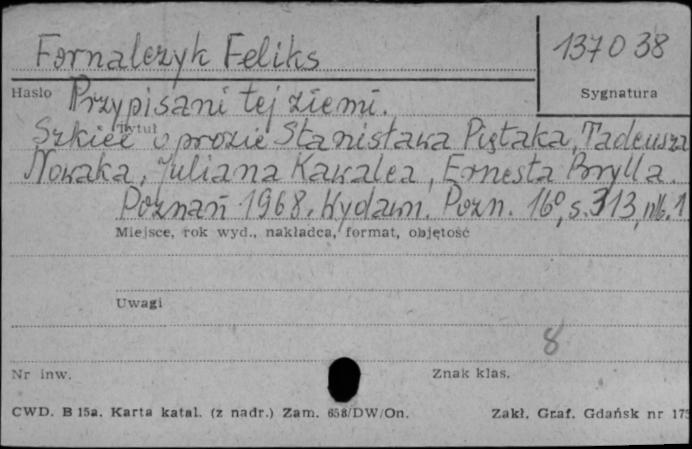 Fornalczyk Feliks
137038
Hasło
Sygnatura
Przypisani tej ziemi.
Tytuł
Szkice o prozie Stanisława Piętaka, Tadeusza
Nowaka, Juliana Kawalca, Ernesta Brylla.
Poznań 1968. Wydawn. Pozn. 16°, s. 313, nlb. 1
Miejsce, rok wyd., nakładca, format, objętość
Uwagi
8
Nr inw.
Znak klas.
CWD. B 15a. Karta katal. (z nadr.) Zam. 658/DW/On.
Zakł. Graf. Gdańsk nr 175